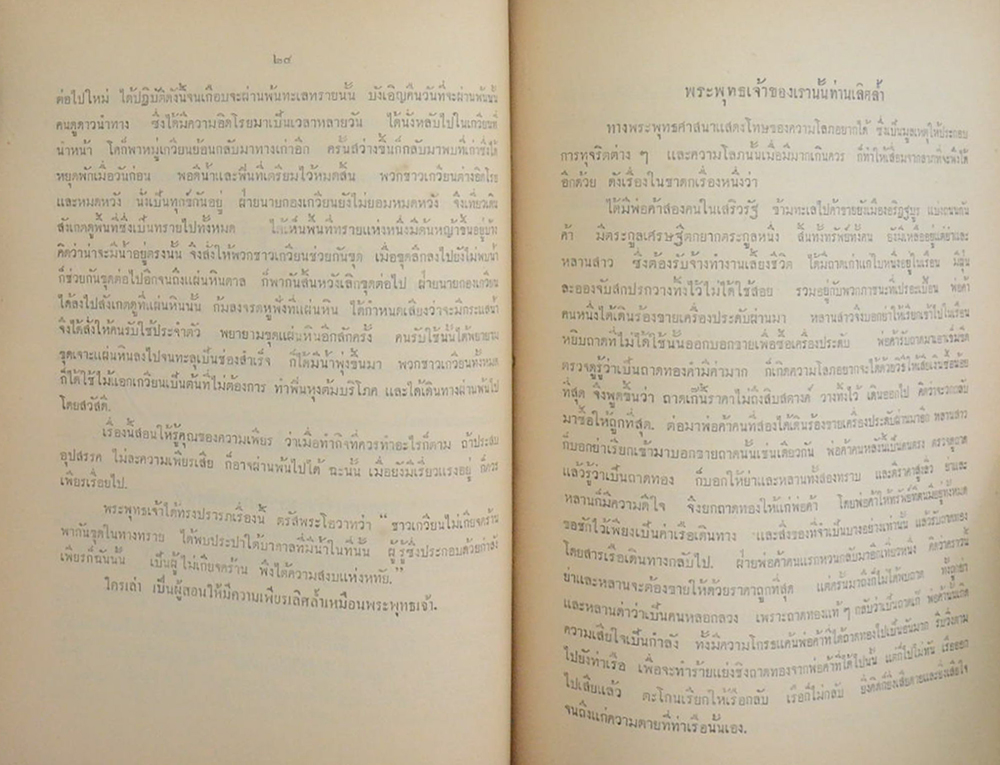 ๒๙
ต่อไปใหม่ ได้ปฏิบัติดังนี้จนเกือบจะผ่านพ้นทะเลทรายนั้น บังเอิญคืนวันที่จะผ่านพ้น
คนดูดาวนำทาง ซึ่งได้มีความอิดโรยมาเป็นเวลาหลายวัน ได้นั่งหลับไปในเกวียนที่
นำหน้า โคก็พาหมู่เกวียนย้อนกลับมาทางเก่าอีก ครั้นสว่างขึ้นก็กลับมาพบที่เก่าซึ่งได้
หยุดพักเมื่อวันก่อน พอดีน้ำและฟืนที่เตรียมไว้หมดสิ้น พวกชาวเกวียนต่างอิดโรย
และหมดหวัง นั่งเป็นทุกข์กันอยู่ ฝ่ายนายกองเกวียนยังไม่ยอมหมดหวัง จึงเที่ยวเดิน
สังเกตดูพื้นที่ซึ่งเป็นทรายไปทั้งหมด ได้เห็นพื้นที่ทรายแห่งหนึ่งมีต้นหญ้าขึ้นอยู่
คิดว่าน่าจะมีน้ำอยู่ตรงนั้น จึงสั่งให้พวกชาวเกวียนช่วยกันขุด เมื่อขุดลึกลงไปยังไม่พบน้ำ
ก็ช่วยกันขุดต่อไปอีกจนถึงแผ่นหินดาล ก็พากันสิ้นหวังเลิกขุดต่อไป ฝ่ายนายกองเกวียน
ได้ลงไปสังเกตดูที่แผ่นหินนั้น ก้มลงจรดหูฟังที่แผ่นหิน ได้กำหนดเสียงว่าจะมีกระแสน้ำ
จึงได้สั่งให้คนรับใช้ประจำตัว พยายามขุดแผ่นหินอีกสักครั้ง คนรับใช้นั้นได้พยายาม
ขุดเจาะแผ่นหินลงไปจนทะลุเป็นช่องสำเร็จ ก็ได้มีน้ำพุ่งขึ้นมา พวกชาวเกวียนทั้งหมด
ก็ได้ใช้ไม้แอกเกวียนเป็นต้นที่ไม่ต้องการ ทำฟืนหุงต้มบริโภค และได้เดินทางผ่านพ้นไป
โดยสวัสดี.
เรื่องนี้สอนให้รู้คุณของความเพียร ว่าเมื่อทำกิจที่ควรทำอะไรก็ตาม ถ้าประสบ
อุปสรรค ไม่ละความเพียรเสีย ก็อาจผ่านพ้นไปได้ ฉะนั้น เมื่อยังมีเรี่ยวแรงอยู่ ก็ควร
เพียรเรื่อยไป.
พระพุทธเจ้าได้ทรงปรารภเรื่องนี้ ตรัสพระโอวาทว่า “ชาวเกวียนไม่เกียจคร้าน
พากันขุดในทางทราย ได้พบประปาได้บาดาลที่มีน้ำในที่นั้น ผู้รู้ซึ่งประกอบด้วยกำลัง
เพียรก็ฉันนั้น เป็นผู้ไม่เกียจคร้าน พึงได้ความสงบแห่งหทัย.”
ใครเล่า เป็นผู้สอนให้มีความเพียรเลิศล้ำเหมือนพระพุทธเจ้า.
พระพุทธเจ้าของเรานั้นท่านเลิศล้ำ
ทางพระพุทธศาสนาแสดงโทษของความโลภอยากได้ ซึ่งเป็นมูลเหตุให้ประกอบ
การทุจริตต่าง ๆ และความโลภนั้นเมื่อมีมากเกินควร ก็ทำให้เสื่อมจากลาภที่จะพึงได้
อีกด้วย ดังเรื่องในชาดกเรื่องหนึ่งว่า
ได้มีพ่อค้าสองคนในเสริวรัฐ ข้ามทะเลไปค้าขายยังเมืองอริฏฐบุร แบ่งถนนกัน
ค้า มีตระกูลเศรษฐีตกยากตระกูลหนึ่ง สิ้นทั้งทรัพย์ทั้งคน ยังมีเหลืออยู่แต่ย่าและ
หลานสาว ซึ่งต้องรับจ้างทำงานเลี้ยงชีวิต ได้มีถาดเก่าแก่ใบหนึ่งอยู่ในเรือน มีฝุ่น
ละอองจับสกปรกวางทิ้งไว้ไม่ได้ใช้สอย รวมอยู่กับพวกภาชนะที่เปรอะเปื้อน พ่อค้า
คนหนึ่งได้เดินร้องขายเครื่องประดับผ่านมา หลานสาวจึงบอกย่าให้เรียกเข้าไปในเรือน
หยิบถาดที่ไม่ได้ใช้นั้นออกบอกขายเพื่อซื้อเครื่องประดับ พ่อค้ารับถาดมา
ตรวจดูรู้ว่าเป็นถาดทองคำมีค่ามาก ก็เกิดความโลภอยากจะได้ด้วยวิธีให้เสียเงินซื้อน้อย
ที่สุด จึงพูดขึ้นว่า ถาดเก๊นี้ราคาไม่ถึงสิบสตางค์ วางทิ้งไว้ เดินออกไป คิดว่าจะวกกลับ
มาซื้อให้ถูกที่สุด. ต่อมาพ่อค้าคนที่สองได้เดินร้องขายเครื่องประดับผ่านมาอีก หลานสาว
ก็บอกย่าเรียกเข้ามาบอกขายถาดนั้นเช่นเดียวกัน พ่อค้าคนหลังนี้เป็นคนตรง ตรวจดูถาด
แล้วรู้ว่าเป็นถาดทอง ก็บอกให้ย่าและหลานทั้งสองทราบ และตีราคาสูงลิ่ว ย่าและ
หลานก็มีความดีใจ จึงยกถาดทองให้แก่พ่อค้า โดยพ่อค้าให้ทรัพย์ที่ตนมีอยู่ทั้งหมด
ขอชักไว้เพียงเป็นค่าเรือเดินทาง และสิ่งของที่จำเป็นบางอย่างเท่านั้น แล้วรับถาดทอง
โดยสารเรือเดินทางกลับไป. ฝ่ายพ่อค้าคนแรกหวนกลับมาอีกเที่ยวหนึ่ง คิดว่าคราวนี้
ย่าและหลานจะต้องขายให้ด้วยราคาถูกที่สุด แต่ครั้นมาถึงก็ไม่ได้พบถาด ทั้งถูกย่า
และหลานด่าว่าเป็นคนหลอกลวง เพราะถาดทองแท้ๆ กลับว่าเป็นถาดเก๊ พ่อค้านั้นเกิด
ความเสียใจเป็นกำลัง ทั้งมีความโกรธแค้นพ่อค้าที่ได้ถาดทองไปเป็นอันมาก รีบวิ่งตาม
ไปยังท่าเรือ เพื่อจะทำร้ายแย่งชิงถาดทองจากพ่อค้าที่ได้ไปนั้น แต่ก็ไปไม่ทัน เรือออก
ไปเสียแล้ว ตะโกนเรียกให้เรือกลับ เรือก็ไม่กลับ ยิ่งคิดก็ยิ่งเสียดายและยิ่งเสียใจ
จนถึงแก่ความตายที่ท่าเรือนั้นเอง.